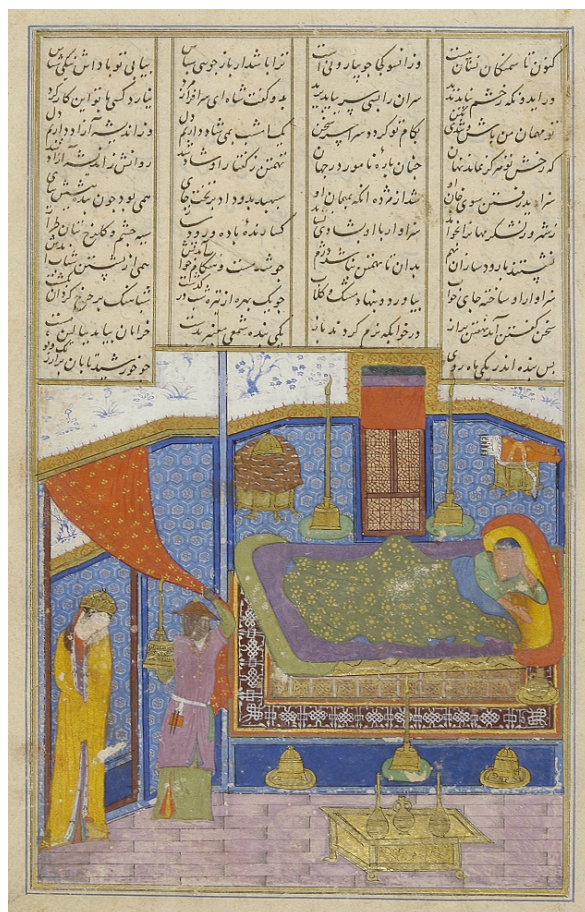 کنون تا سمنگان نشان پی است وز انسو کجا جویبار و نی است ترا باشد ار باز جویی سپاس بیابی تو پاداش نیکی شناس
ور ایدونکه رخشم نیاید پدید سران را بسی سر بباید برید بدو گفت شاه ای سرافراز مرد نیارد کسی با تو این کار کرد
تو مهمان من باش و تندی مکن بکام تو گردد سراسر سخن یک امشب بمی شاد داریم دل وز اندیشه آزاد داریم دل
که رخش تهمتن نماند نهان چنان باره نامور در جهان تهمتن ز گفتار او شاد شد روانش ز اندیشه آزاد شد
سزا دید رفتن سوی خان او شد از مژده آنگه بمهمان او سپهبد بدو داد بر تخت جای همی بود چون بنده پیشش بپای
ز شهر و ز لشکر مهانرا بخواند سزاوار با او بشادی نشاند گسارنده باده و رود ساز سیه چشم و گلرخ بتان طراز
نشستند با رود سازان بهم بدان تا تهمتن نباشد دژم چو شد مست و هنگام خواب آمدش همی از نشستن شتاب آمدش
سزاوار او ساخته جای خواب بیاورد و بنهاد مشک و گلاب چو یک بهره از تیره شب در گذشت شباهنگ بر چرخ گردان بگشت
سخن گفتن آمد نهفته براز در خوابگه نرم کردند باز یکی بنده شمعی معنبر بدست خرامان بیامد ببالین مست
پس بنده اندر یکی ماه روی چو خورشید تابان پر از رنگ و بوی